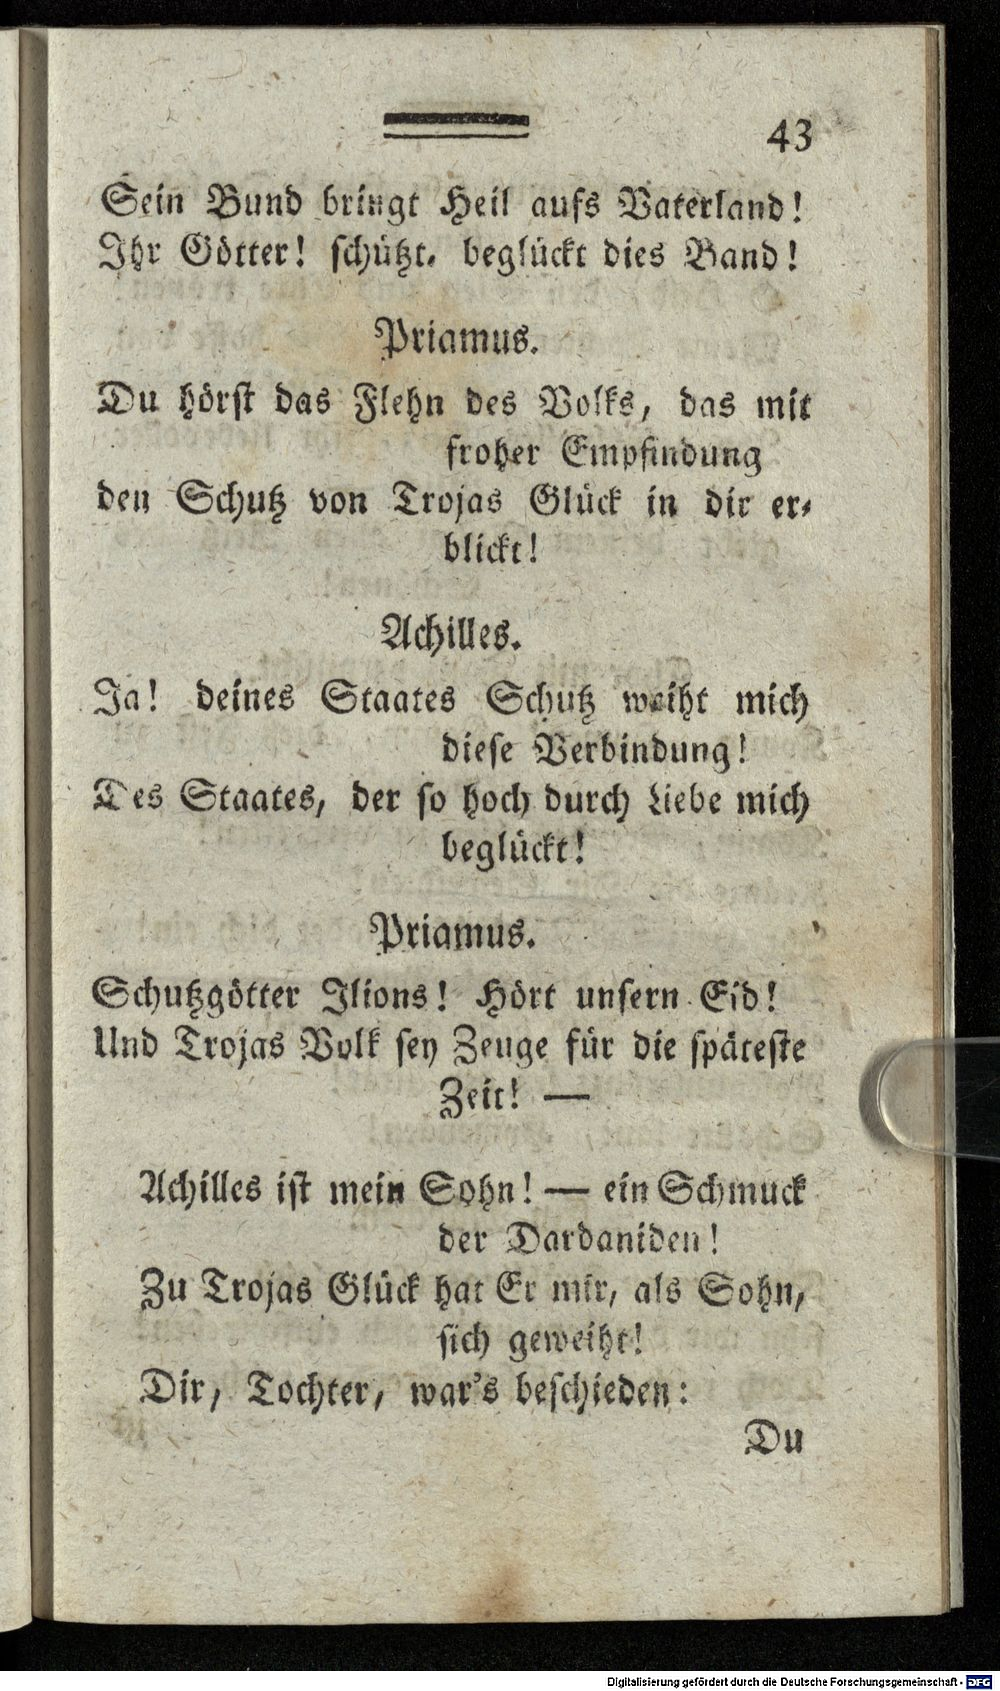 43
Sein Bund bringt Heil aufs Vaterland!
Ihr Götter! schützt, beglückt dies Band!
Priamus.
Du hörst das Flehn des Volks, das mit
froher Empfindung
den Schutz von Trojas Glück in dir er-
blickt!
Achilles.
Ja! deines Staates Schutz weiht mich
diese Verbindung!
Des Staates, der so hoch durch Liebe mich
beglückt!
Priamus.
Schutzgötter Ilions! Hört unsern Eid!
Und Trojas Volk sey Zeuge für die späteste
Zeit! —
Achilles ist mein Sohn! — ein Schmuck
der Dardaniden!
Zu Trojas Glück hat Er mir, als Sohn,
sich geweiht!
Dir, Tochter, war's beschieden:
Du
Digitalisierung gefördert durch die Deutsche Forschungsgemeinschaft - DFG